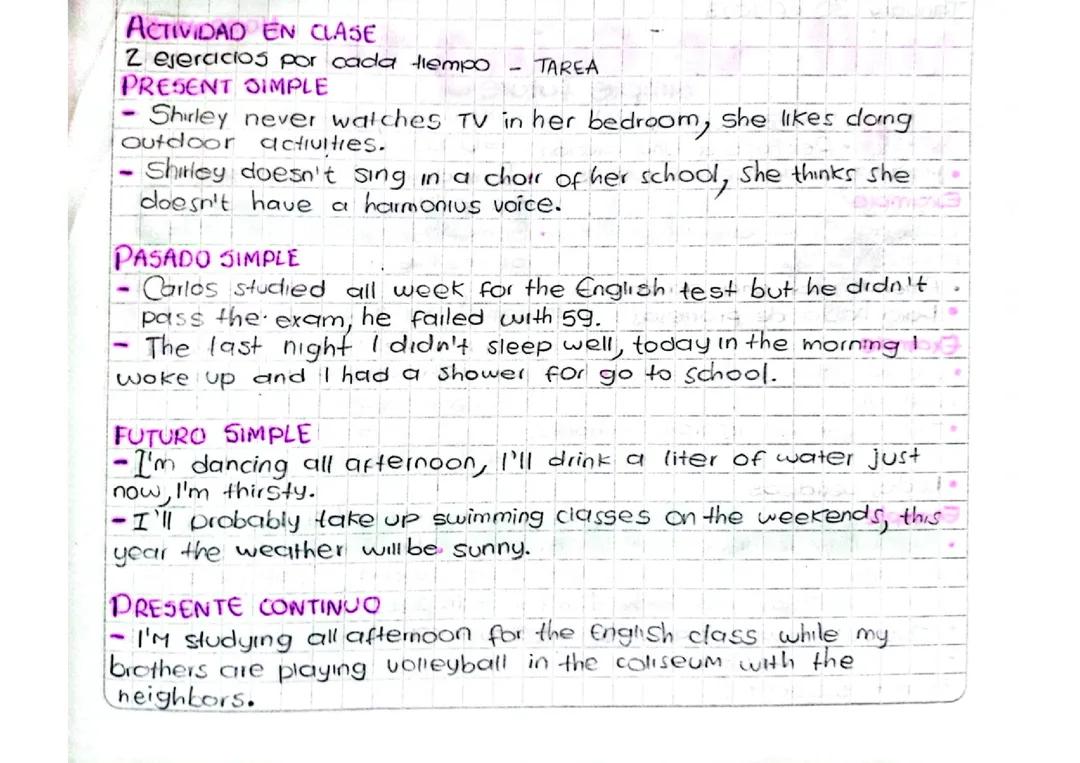 ACTIVIDAD EN CLASE
2 ejercicios por cada tiempo - TAREA
PRESENT SIMPLE
- Shirley never watches TV in her bedroom, she likes doing
outdoor activities.
- Shirley doesn't sing in a choir of her school, she thinks she
doesn't have a harmonius voice.
PASADO SIMPLE
- Carlos studied all week for the English test but he didn't
pass the exam, he failed with 59.
- The last night I didn't sleep well, today in the morning I
woke up and I had a shower for go to school.
FUTURO SIMPLE
- I'm dancing all afternoon, I'll drink a liter of water just
now, I'm thirsty.
- I'll probably take up swimming classes on the weekends, this
year the weather will be sunny.
PRESENTE CONTINUO
- I'M studying all afternoon for the English class while my
brothers are playing volleyball in the coliseum with the
neighbors.